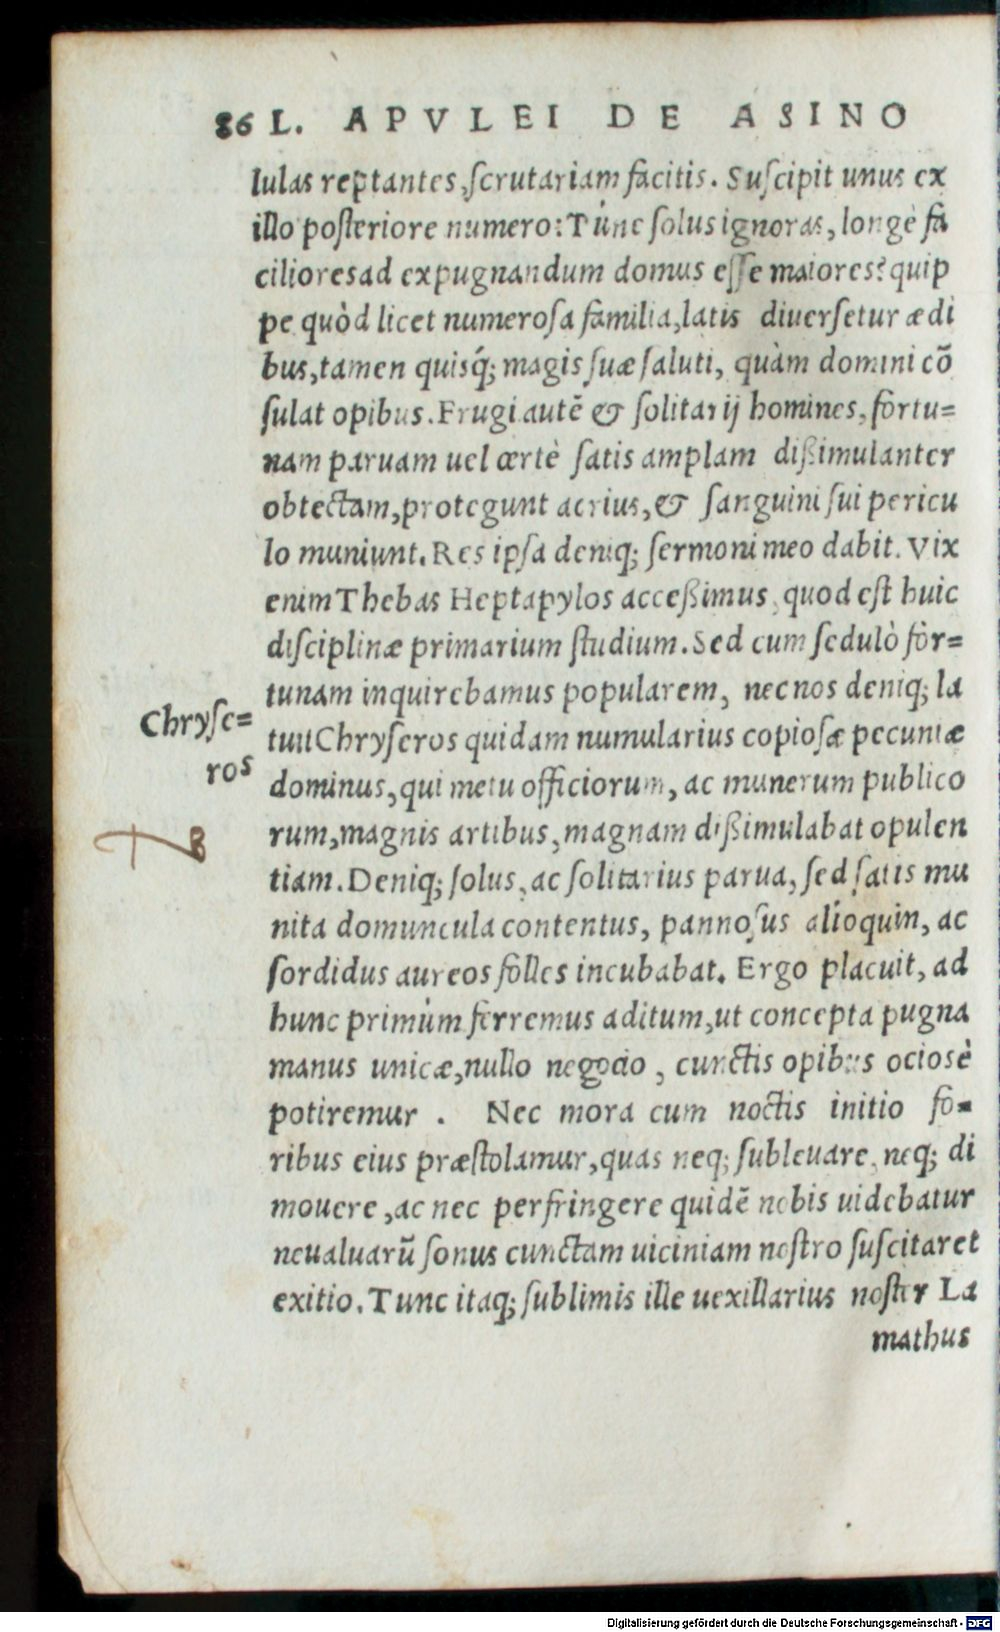 86 L. APVLEI DE ASINO
lulas reptantes,ſcrutariam facitis. Suſcipit unus ex
illo poſteriore numero:Túnc ſolus ignoras, longè fa
cilioresad expugnandum domus eſſe maiores?quip
pe quòd licet numeroſa familia,latis diuerſetur ædi
bus,tamen quisq́; magis ſuæ ſaluti, quàm domini cõ
ſulat opibus.Frugi autẽ & ſolitarij homines,fortu=
nam paruam uel certè ſatis amplam dißimulanter
obtectam,protegunt acrius,& ſanguini ſui pericu
lo muniunt.Res ipſa deniq; ſermoni meo dabit. Vix
enim Thebas Heptapylos acceßimus, quod eſt huic
diſciplinæ primarium ſtudium.Sed cum ſedulò for=
tunam inquirebamus popularem, nec nos deniq; la
tuit Chryſeros quidam numularius copioſæ pecuniæ
Chryſe=
ros
dominus,qui metu officiorum, ac munerum publico
rum,magnis artibus,magnam dißimulabat opulen
tiam.Deniq; ſolus, ac ſolitarius parua, ſed ſatis mu
nita domuncula contentus, pannoſus alioquin, ac
ſordidus aureos folles incubabat. Ergo placuit, ad
hunc primùm ferremus aditum,ut concepta pugna
manus unicæ,nullo negocio , cunctis opibus ociosè
potiremur . Nec mora cum noctis initio fo=
ribus eius præſtolamur,quas neq; ſubleuare, neq; di
mouere,ac nec perfringere quidẽ nobis uidebatur
neualuarũ ſonus cunctam uiciniam noſtro ſuſcitaret
exitio.Tunc itaq; ſublimis ille uexillarius noſter La
mathus
Digitalisierung gefördert durch die Deutsche Forschungsgemeinschaft - DFG